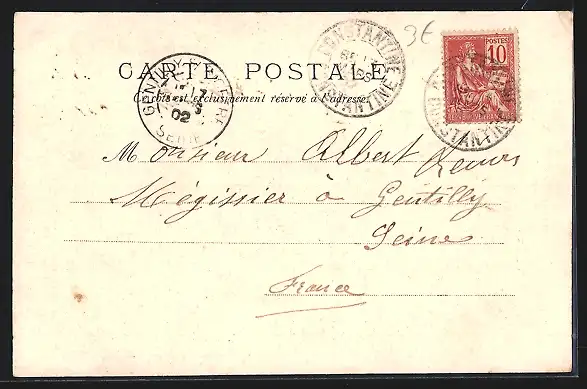 3€
CONSTANTINE
CONSTANTINE
POSTES
10
CARTE POSTALE
Ce côté est exclusivement réservé à l'adresse
GENTILLY
02
SEINE
CONSTANTINE
Monsieur Albert
Mégissier à Gentilly
Seine
France